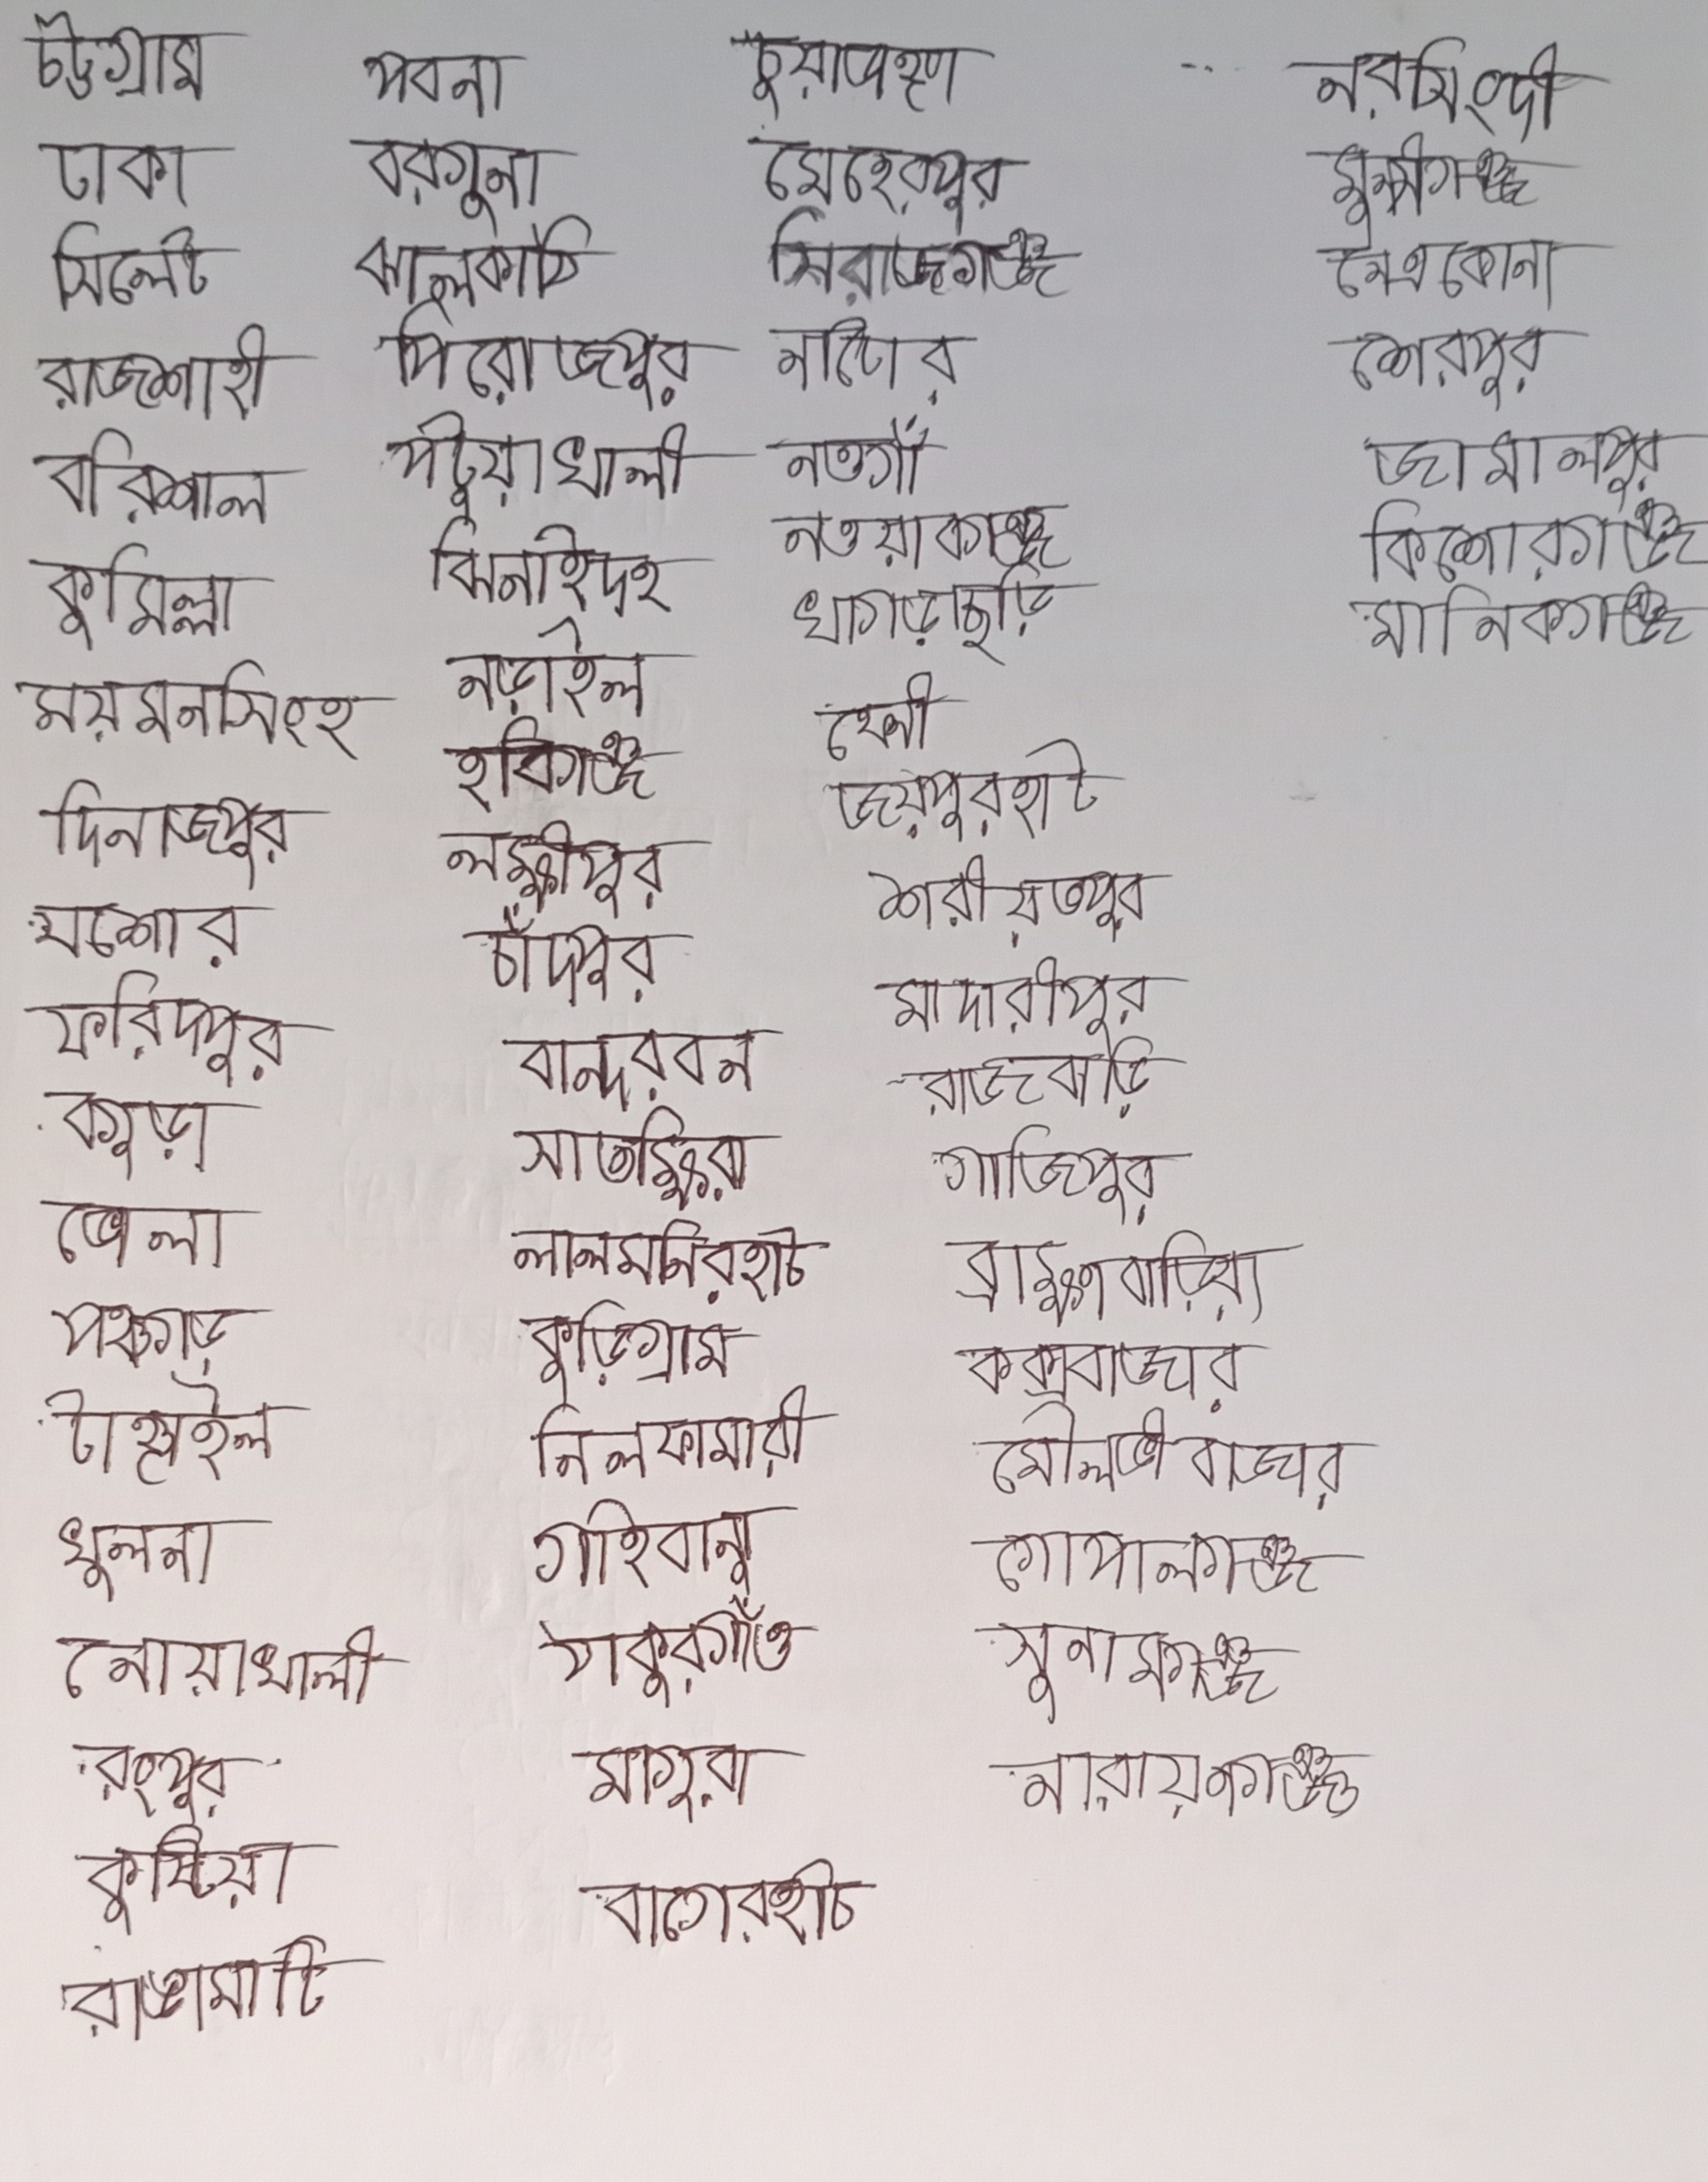 চট্টগ্রাম
ঢাকা
সিলেট
রাজশাহী
বরিশাল
কুমিল্লা
ময়মনসিংহ
দিনাজপুর
যশোর
ফরিদপুর
বগুড়া
ভোলা
পঞ্চগড়
টাঙ্গাইল
খুলনা
নোয়াখালী
রংপুর
কুষ্টিয়া
রাঙামাটি
পবনা
বরগুনা
ঝালকাঠি
পিরোজপুর
পটুয়াখালী
ঝিনাইদহ
নড়াইল
হবিগঞ্জ
লক্ষ্মীপুর
চাঁদপুর
বান্দরবন
সাতক্ষিরা
লালমনিরহাট
কুড়িগ্রাম
নিলফামারী
গাইবান্ধা
ঠাকুরগাঁও
মাগুরা
বাগেরহাট
মেহেরপুর
সিরাজগঞ্জ
নাটোর
নওগাঁ
খাগড়াছড়ি
ফেনী
জয়পুরহাট
শরীয়তপুর
মাদারীপুর
রাজবাড়ি
গাজিপুর
ব্রাহ্মণবাড়িয়া
কক্সবাজার
মৌলভীবাজার
গোপালগঞ্জ
সুনামগঞ্জ
নারায়নগঞ্জ
নরসিংদী
মুন্সীগঞ্জ
নেত্রকোনা
শেরপুর
জামালপুর
কিশোরগঞ্জ
মানিকগঞ্জ